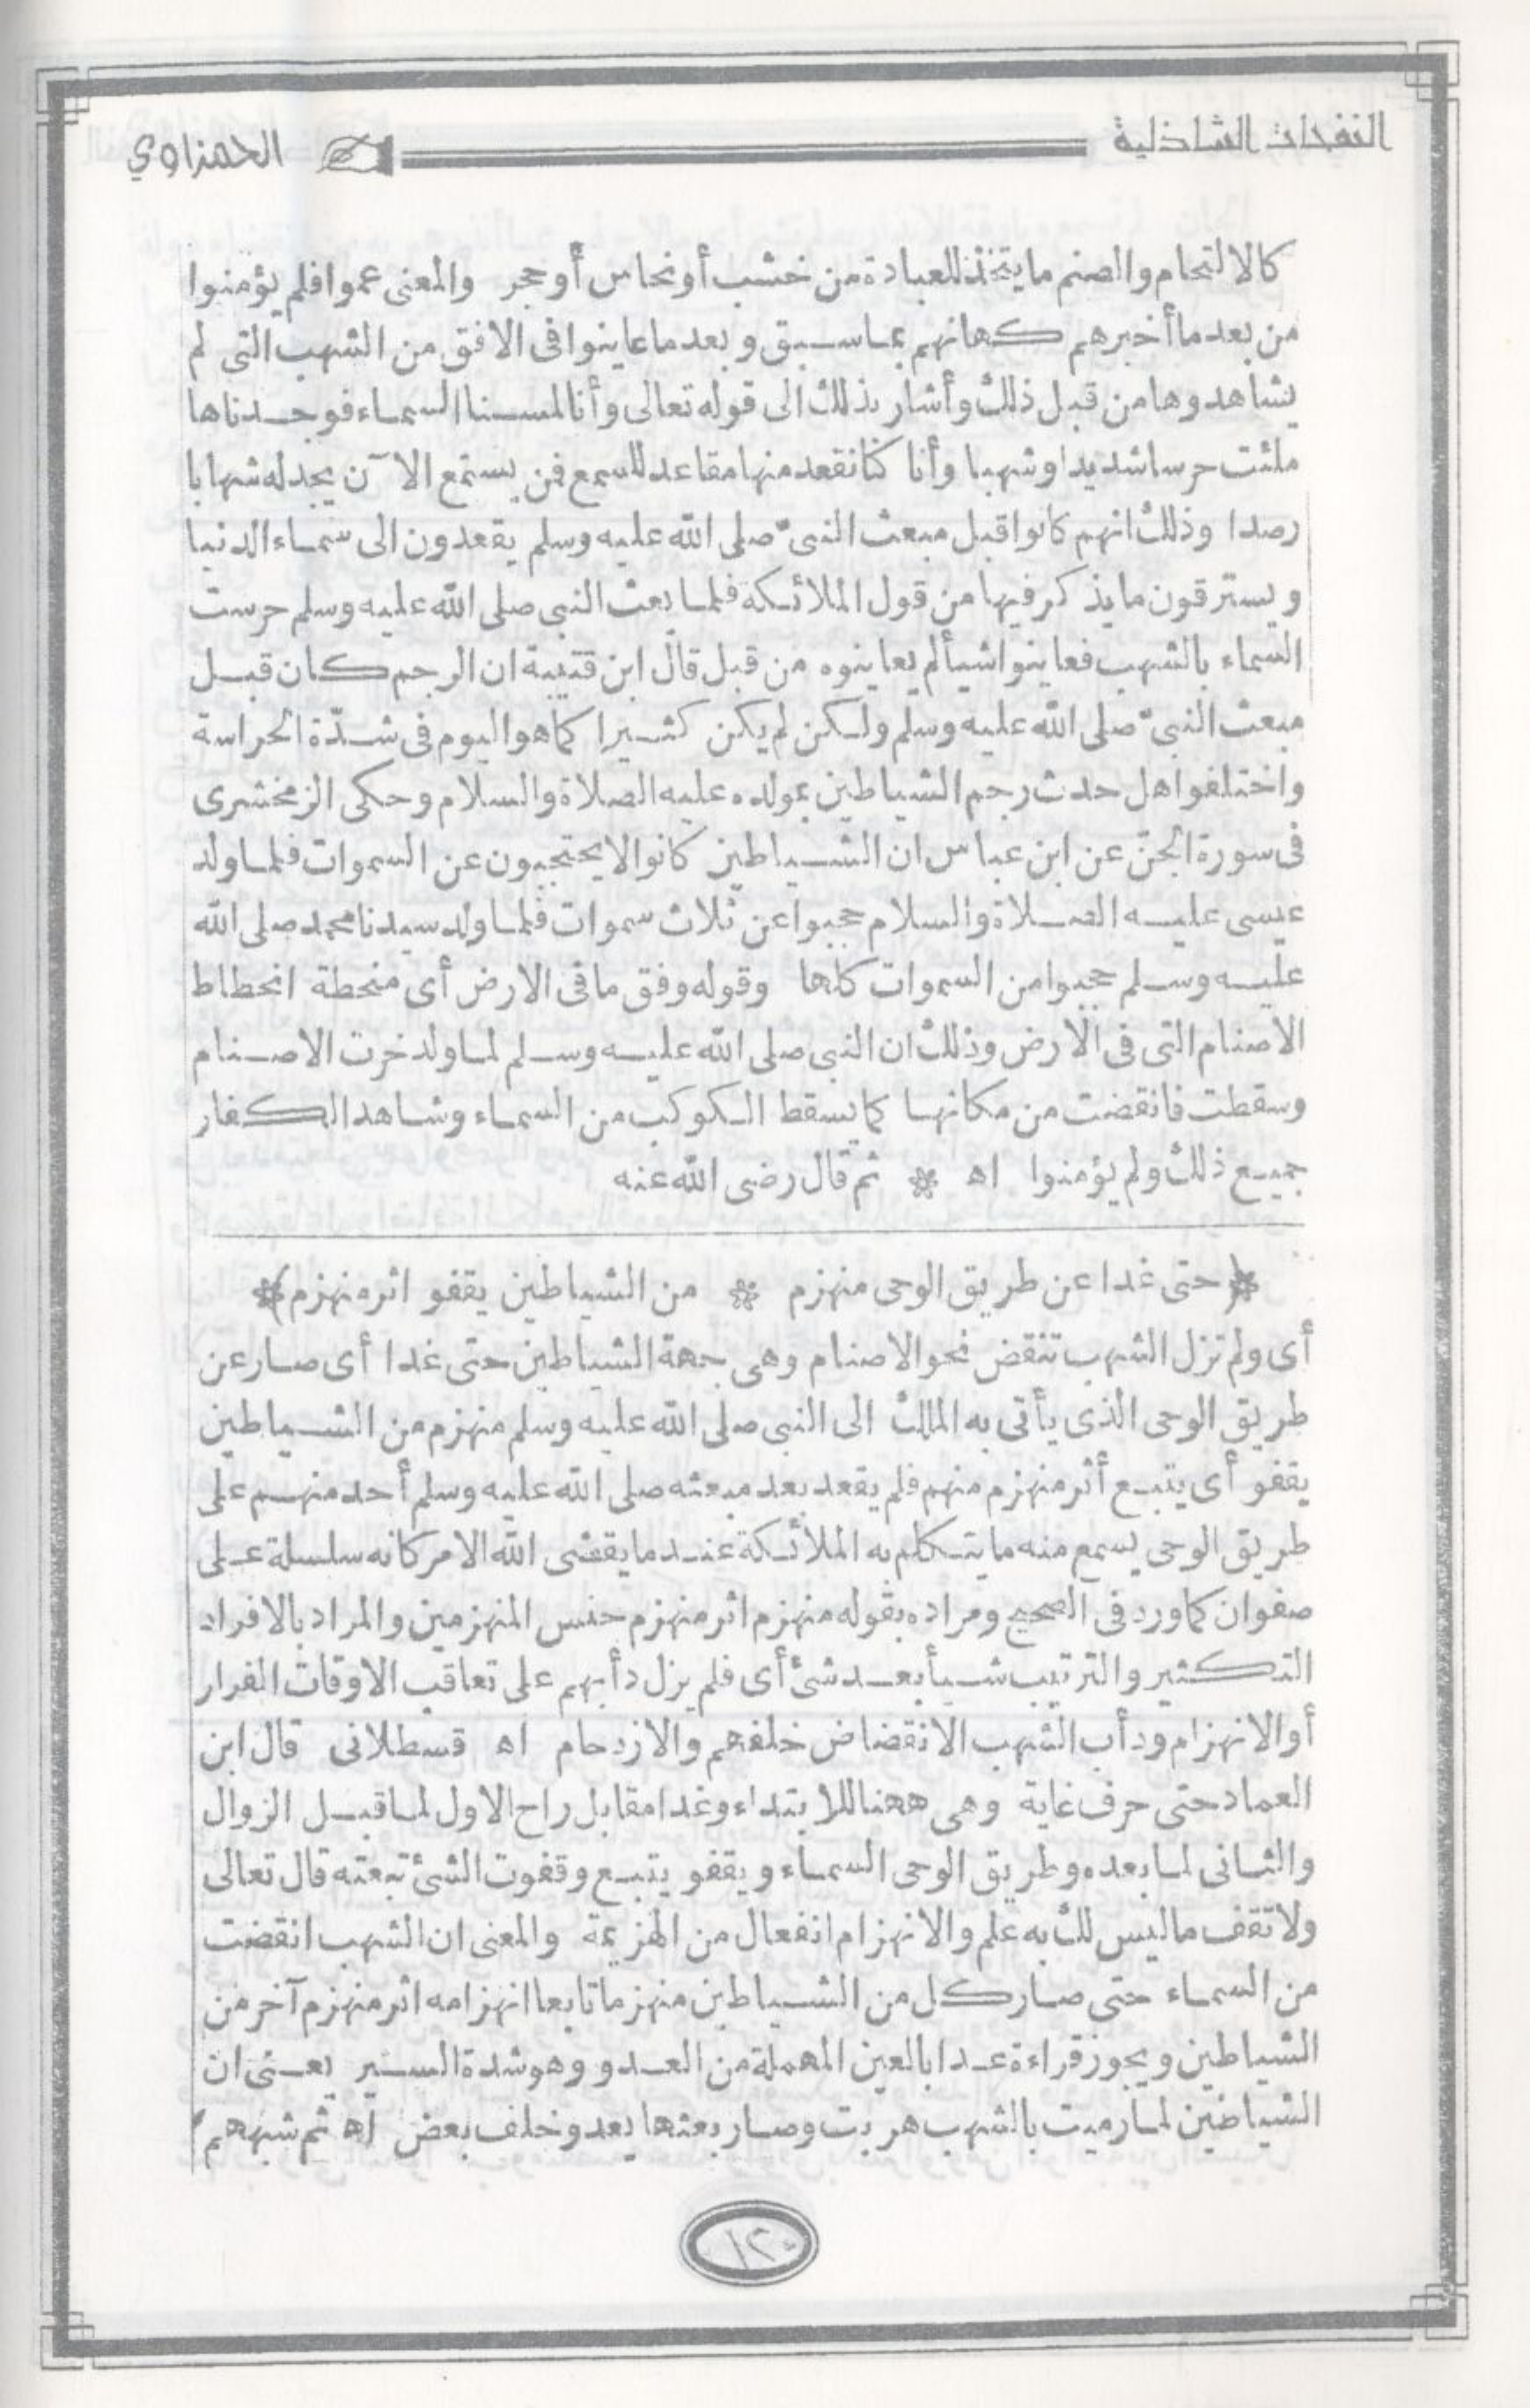 النفحات الشاذلية
الحمزاوي
كالالتحام والصنم مايتخذ للعبادة من خشب أونحاس أوحجر والمعنى عموا فلم يؤمنوا
من بعدما أخبرهم كهانهم بماسبق و بعد ما عاينوا فى الافق من الشهب التى لم
يشاهدوها من قبل ذلك وأشار بذلك الى قوله تعالى وأنا لمسنا السماء فوجدناها
ملئت حرسا شديدا وشهبا وأنا كنا نقعد منها مقاعد للسمع فمن يستمع الآن يجد له شهابا
رصدا وذلك انهم كانوا قبل مبعث النبىّ صلى الله عليه وسلم يقعدون الى سماء الدنيا
ويسترقون ما يذكر فيها من قول الملائكة فلما بعث النبى صلى الله عليه وسلم حرست
السماء بالشهب فعاينوا شيأ لم يعاينوه من قبل قال ابن قتيبة ان الرجم كان قبل
مبعث النبىّ صلى الله عليه وسلم ولكن لم يكن كثيرا كما هو اليوم فى شدّة الحراسة
واختلفوا هل حدث رجم الشياطين بمولده عليه الصلاة والسلام وحكى الزمخشرى
فى سورة الجنّ عن ابن عباس ان الشياطين كانوا لا يحتجبون عن السموات فلما ولد
عيسى عليه الصلاة والسلام حجبوا عن ثلاث سموات فلما ولد سيدنا محمد صلى الله
عليه وسلم حجبوا من السموات كلها وقوله وفق ما فى الارض أى منحطة انحطاط
الاصنام التى فى الارض وذلك ان النبى صلى الله عليه وسلم لما ولد خرت الاصنام
وسقطت فانقضت من مكانها كما يسقط الكوكب من السماء وشاهد الكفار
جميع ذلك ولم يؤمنوا اه * ثم قال رضى الله عنه
*(حتى غدا عن طريق الوحى منهزم * من الشياطين يقفو اثر منهزم)*
أى ولم تزل الشهب تنقض نحو الاصنام وهى جهة الشياطين حتى غدا أى صار عن
طريق الوحى الذى يأتى به الملك الى النبى صلى الله عليه وسلم منهزم من الشياطين
يقفو أى يتبع أثر منهزم منهم فلم يقعد بعد مبعثه صلى الله عليه وسلم أحد منهم على
طريق الوحى يسمع منه ما يتكلم به الملائكة عند ما يقضى الله الامر كانه سلسلة على
صفوان كما ورد فى الصحيح ومراده بقوله منهزم اثر منهزم جنس المنهزمين والمراد بالافراد
التكثير والترتيب شيأ بعد شئ أى فلم يزل دأبهم على تعاقب الاوقات الفرار
أو الانهزام ودأب الشهب الانقضاض خلفهم والازدحام اه قسطلانى قال ابن
العماد حتى حرف غاية وهى ههنا للابتداء وغدا مقابل راح الاول لما قبل الزوال
والثانى لما بعده وطريق الوحى السماء ويقفو يتبع وقفوت الشئ تبعته قال تعالى
ولا تقف ما ليس لك به علم والانهزام انفعال من الهزيمة والمعنى ان الشهب انقضت
من السماء حتى صار كل من الشياطين منهزما تابعا انهزامه اثر منهزم آخر من
الشياطين ويجوز قراءة عدا بالعين المهملة من العدو وهو شدة السير يعنى ان
الشياطين لما رميت بالشهب هربت وصار بعضها يعدو خلف بعض اه ثم شبههم